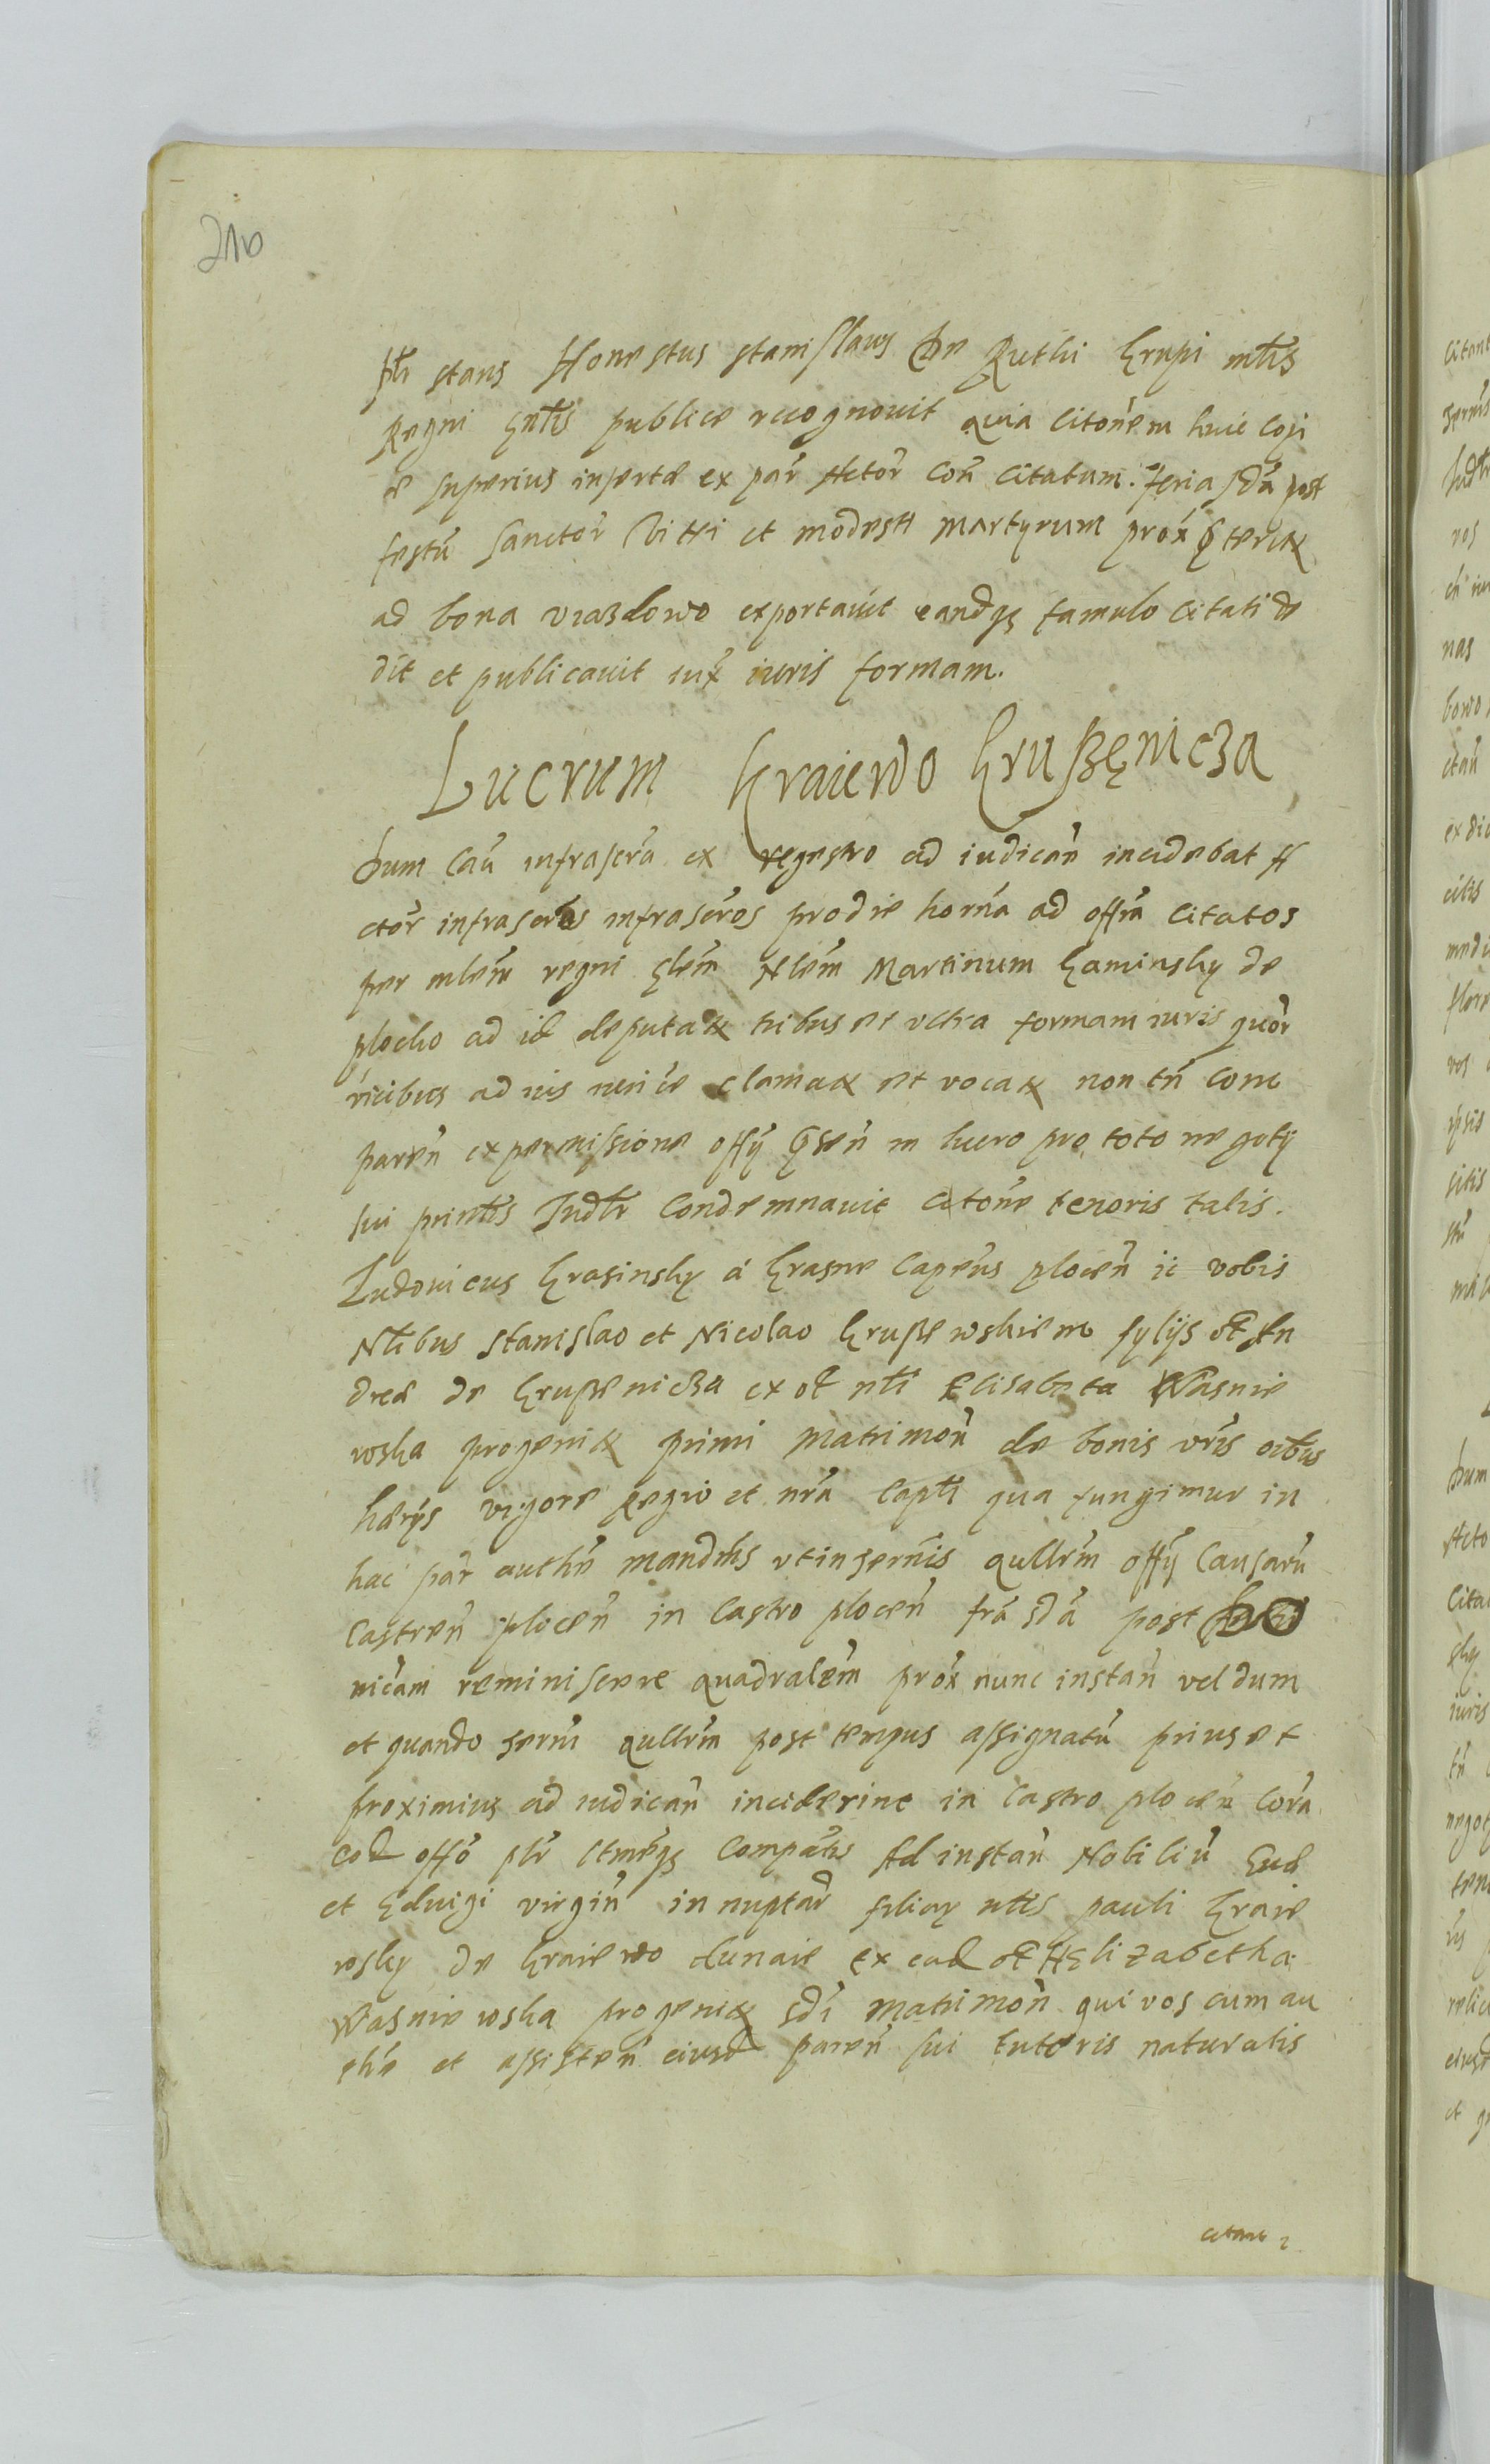 210
Pntr stans Honestus Stanislaus de Ruthi Krupi mtrs
Regni gnlis publice recognouit quia citonem huic copi
e superius inserte ex par Actor con citatum feria sda post
festu sanctor Viti et modesti Martyrum prox
ad bona exportauit eandqz famulo citati de
dit et publicauit iux iuris formam.
Lucrum Kraiewo Krußenicza
Dum cau infrascra ex regestro ad iudican incidebat A
ctor infrascros prodie horna ad offm citatos
per mlem regni glem Nlem Martinum Kaminsky de
plocko ad id deputat tribus et vltra formam iuris quor
vicibus ad ius clamat et vocat non tn com
paren ex permissione offy in lucro pro toto negoty
sui Judtr condemnauit citone tenoris talis.
Ludouicus Krasinsky á Krasne Capeus plocen ic vobis
Nlibus Stanislao et Nicolao Krußewskiem fylijs olim An
drea de Krußenicza ex ol nli Elisabeta Wasnie
wska progenit primi matrimon de bonis vris oibus
harys vigore regio et nra capli qua fungimur in
hac par authe mandms vt in sernis qullrm offy causaru
castren plocen in castro plocen fra sda post Do
nicam reminiscere quadralem prox nunc instan vel dum
et quando serni qullrm post tempus assignatu prius et
proximius ad iudican inciderint in castro plocen cora
cod offo Ad instan Nobiliu Eud
et Edvigi virgin innuptar filiar nlis pauli Kraie
wsky de Kraiewo dunaie ex ead ol Elizabetha
Wasniewska progenit sdi matrimon qui vos cum au
the et assisten eiusd paren sui tutoris naturalis
citant